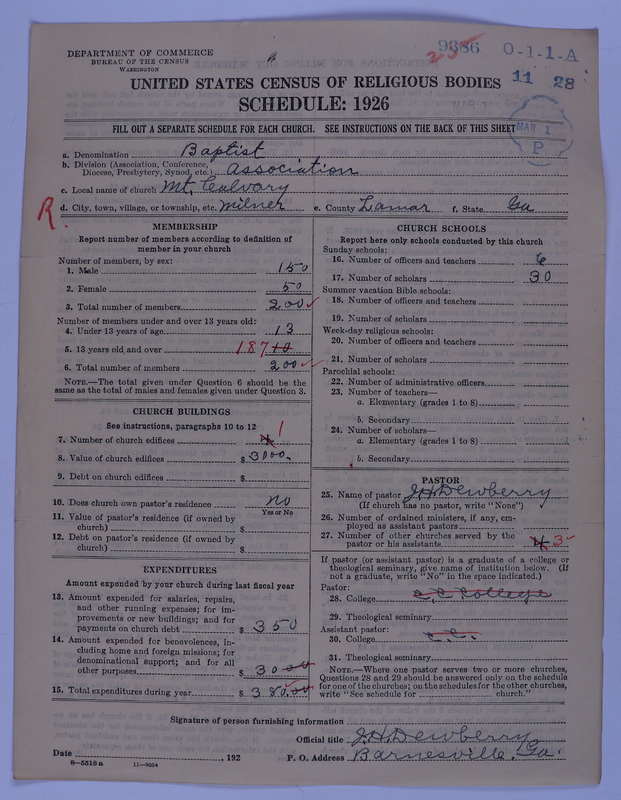 DEPARTMENT OF COMMERCE
BUREAU OF THE CENSUS
WASHINGTON
9886 O-1-1-A
11 28
UNITED STATES CENSUS OF RELIGIOUS BODIES
SCHEDULE: 1926
MAR 1
P
FILL OUT A SEPARATE SCHEDULE FOR EACH CHURCH. SEE INSTRUCTIONS ON THE BACK OF THIS SHEET
a. Denomination Baptist
b. Division (Association, Conference, Diocese, Presbytery, Synod, etc.) Association
c. Local name of church Mt. Calvary
d. City, town, village, or township, etc. Milner e. County Lamar f. State Ga
R
MEMBERSHIP
Report number of members according to definition of
member in your church
Number of members, by sex:
1. Male 150
2. Female 50
3. Total number of members 200
Number of members under and over 13 years old:
4. Under 13 years of age 13
5. 13 years old and over 187
6. Total number of members 200
NOTE.—The total given under Question 6 should be the
same as the total of males and females given under Question 3.
CHURCH BUILDINGS
See instructions, paragraphs 10 to 12
7. Number of church edifices 1
8. Value of church edifices $ 3000.
9. Debt on church edifices $
10. Does church own pastor's residence no
Yes or No
11. Value of pastor's residence (if owned by
church) $
12. Debt on pastor's residence (if owned by
church) $
EXPENDITURES
Amount expended by your church during last fiscal year
13. Amount expended for salaries, repairs,
and other running expenses; for im-
provements or new buildings; and for
payments on church debt $ 350
14. Amount expended for benevolences, in-
cluding home and foreign missions; for
denominational support; and for all
other purposes $ 30 00
15. Total expenditures during year $ 380.00
CHURCH SCHOOLS
Report here only schools conducted by this church
Sunday schools:
16. Number of officers and teachers 6
17. Number of scholars 30
Summer vacation Bible schools:
18. Number of officers and teachers
19. Number of scholars
Week-day religious schools:
20. Number of officers and teachers
21. Number of scholars
Parochial schools:
22. Number of administrative officers
23. Number of teachers—
a. Elementary (grades 1 to 8)
b. Secondary
24. Number of scholars—
a. Elementary (grades 1 to 8)
b. Secondary
PASTOR
25. Name of pastor J.H. Dewberry
(If church has no pastor, write "None")
26. Number of ordained ministers, if any, em-
ployed as assistant pastors
27. Number of other churches served by the
pastor or his assistants 4 3
If pastor (or assistant pastor) is a graduate of a college or
theological seminary, give name of institution below. (If
not a graduate, write "No" in the space indicated.)
Pastor:
28. College College
29. Theological seminary
Assistant pastor:
30. College
31. Theological seminary
NOTE.—Where one pastor serves two or more churches,
Questions 28 and 29 should be answered only on the schedule
for one of the churches; on the schedules for the other churches,
write "See schedule for church."
Signature of person furnishing information
Official title J.H. Dewberry
Date , 192 P. O. Address Barnesville, Ga.
8—5518 a 11—9034